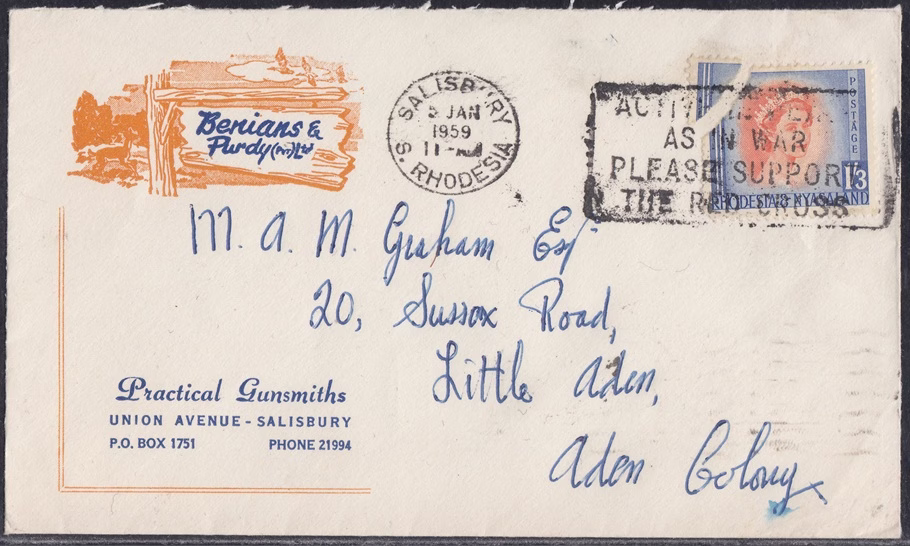 Benians &
Purdy (Pvt) Ltd
SALISBURY
5 JAN
1959
11-
S. RHODESIA
AS IN WAR
PLEASE SUPPORT
THE RED CROSS
POSTAGE
1/3
RHODESIA & NYASALAND
M. A. M. Graham Esq
20, Sussex Road,
Little Aden,
Aden Colony
Practical Gunsmiths
UNION AVENUE - SALISBURY
P.O. BOX 1751 PHONE 21994